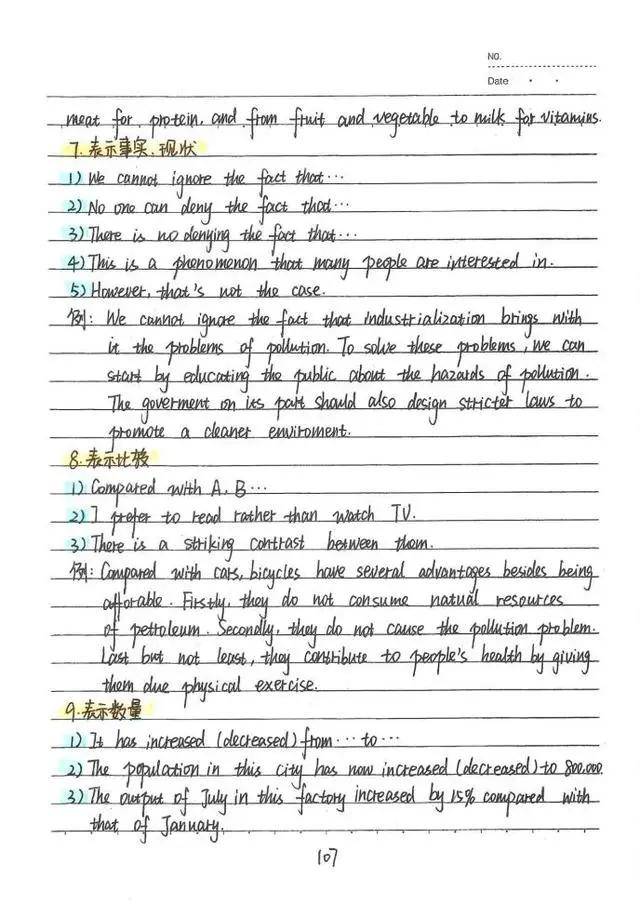 NO.
Date
meat for protein, and from fruit and vegetable to milk for vitamins.
7. 表示事实、现状
1) We cannot ignore the fact that…
2) No one can deny the fact that…
3) There is no denying the fact that…
4) This is a phenomenon that many people are interested in.
5) However, that's not the case.
例: We cannot ignore the fact that industrialization brings with
it the problems of pollution. To solve these problems, we can
start by educating the public about the hazards of pollution.
The goverment on its part should also design stricter laws to
promote a cleaner enviroment.
8. 表示比较
1) Compared with A, B…
2) I prefer to read rather than watch TV.
3) There is a striking contrast between them.
例: Compared with cars, bicycles have several advantages besides being
afforable. Firstly, they do not consume natual resources
of petroleum. Secondly, they do not cause the pollution problem.
Last but not least, they contribute to people's health by giving
them due physical exercise.
9. 表示数量
1) It has increased (decreased) from … to …
2) The population in this city has now increased (decreased) to 800,000.
3) The output of July in this factory increased by 15% compared with
that of January.
107